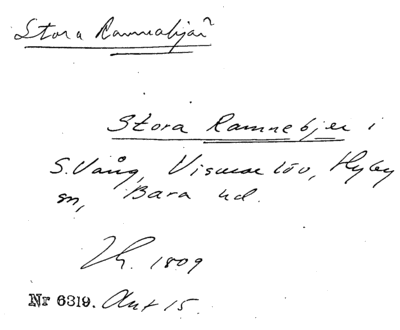 Stora Ramnebjär
Stora Ramnebjer i
S. Vång, Vismarlöv, Hyby
sn, Bara hd.
1809
Nr 6319. Akt 15.